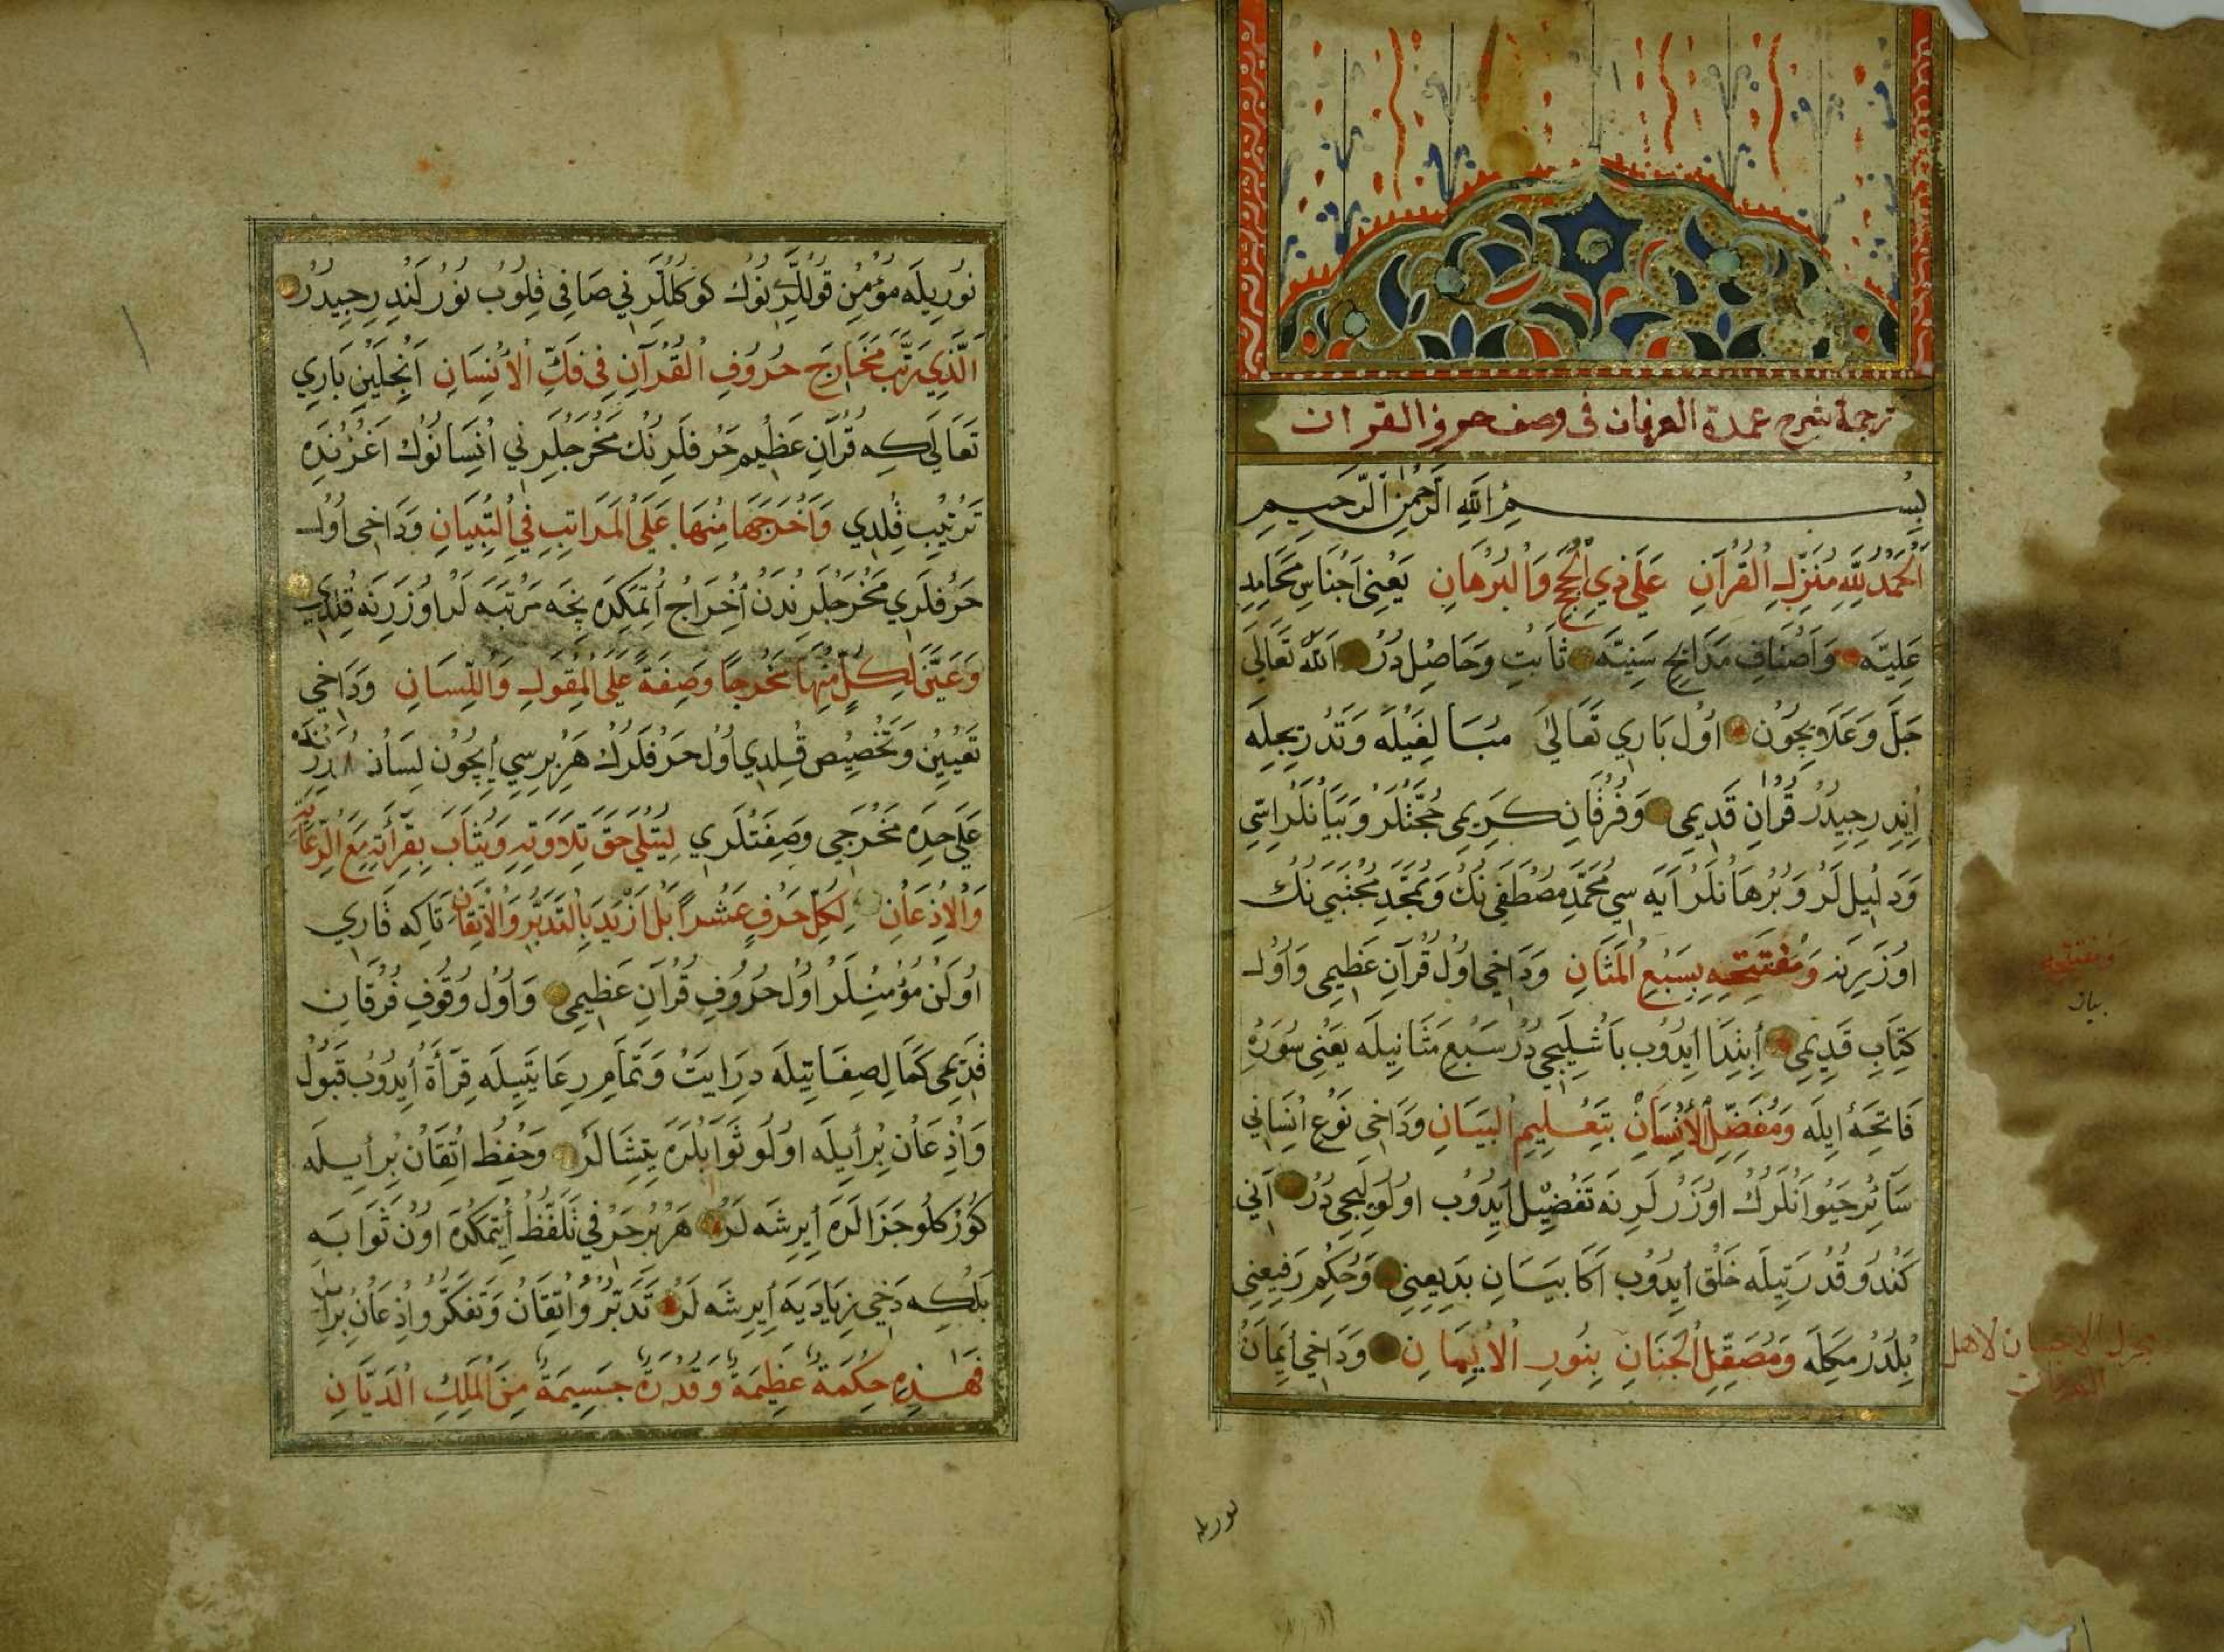 ترجمة شرح عمدة العرفان فى وصف حروف القران
بِسْمِ اللهِ الرَّحْمٰنِ الرَّحِيمِ
اَلْحَمْدُ لِلّٰهِ مُنَزِّلِ الْقُرْآنِ عَلَى ذِي الْحُجَجِ وَالْبُرْهَانِ يَعْنِى اَجْنَاسِ مَحَامِدِ
عَلِيَّه وَاَصْنَافِ مَدَايِحِ سَنِيَّه ثَابِتْ وَحَاصِلْ دُرْ اَللّٰه تَعَالَى
جَلَّ وَعَلَا ايچُونْ اُولْ بَارِي تَعَالٰى مُبَالَغَيْلَه وَتَدْرِيجِلَه
اِينْدِرِجِيدُرْ قُرْانِ قَدِيمِى وَفُرْقَانِ كَرِيمِى حُجَّتْلَرْ وَبَيَانْلَرْ اِسِّى
وَدَلِيلْ لَرْ وَبُرْهَانْلَرْ اِيَه سِي مُحَمَّدِ مُصْطَفَى نِكْ وَمُمَجَّدِ مُجْتَبَى نِكْ
اُوزَرِينَه وَمُفْتَتِحِهِ بِسَبْعِ الْمَثَانِ وَدَاخِى اُولْ قُرْآنِ عَظِيمِى وَاُولْ
كِتَابِ قَدِيمِى اِبْتِدَا اِيدُوبْ بَاشْلَيِجِى دُرْ سَبْعِ مَثَانِيلَه يَعْنِى سُورَهِٔ
فَاتِحَه اِيلَه وَمُفَضِّلِ الْاِنْسَانِ بِتَعْلِيمِ الْبَيَانِ وَدَاخِى نَوْعِ اِنْسَانِي
سَائِرْ حَيْوَانْلَرِكْ اُوزَرْلَرِنَه تَفْضِيلْ اِيدُوبْ اُولُولَيِجِى دُرْ آنِي
كَنْدُو قُدْرَتِيلَه خَلْقْ اِيدُوبْ اَكَا بَيَانِ بَدِيعِنِى وَحُكْمِ رَفِيعِنِى
بِلْدُرْمَكِلَه وَمُصَقِّلِ الْجَنَانِ بِنُورِ الْاِيمَانِ وَدَاخِى اِيمَانْ
وَمُفْتَتِحِهِ
بيان
نوريله
نُورِيلَه مُؤْمِنْ قُولْلَرِنُوكْ كُوكُلْلَرِنِي صَافِى قِلُوبْ نُورْلَنْدِرِجِيدُرْ
اَلَّذِي رَتَّبَ مَخَارِجَ حُرُوفِ الْقُرْآنِ فِى فَكِّ الْاِنْسَانِ آنْجِلَيِنْ بَارِي
تَعَالَى كِه قُرْآنِ عَظِيمِ حَرْفلَرِنُكْ مَخْرَجْلَرِنِي اِنْسَانُوكْ اَغْزِنْدَه
تَرْتِيبْ قِلْدِي وَاَخْرَجَهَا مِنْهَا عَلَى الْمَرَاتِبِ فِي التِّبْيَانِ وَدَاخِى اُولْ
حَرْفلَرِي مَخْرَجلَرِنْدَنْ اِخْرَاجْ اِتْمَكِدَه نِچَه مَرْتَبَه لَرْ اُوزَرِنَه قِلْدِي
وَعَيَّنَ لِكُلٍّ مِنْهَا مَخْرَجًا وَصِفَةً عَلَى الْمِقْوَلِ وَاللِّسَانِ وَدَاخِى
تَعْيِينْ وَتَخْصِيصْ قِلْدِي اُولْ حَرْفلَرِكْ هَرْ بِرِسِي اِيچُونْ لِسَانْ اُزَرِنْدَه
عَلَى حِدَه مَخْرَجِى وَصِفَتْلَرِي لِيُتْلَى حَقَّ تِلَاوَتِهِ وَيُثَابَ بِقِرَأَتِهِ مَعَ الرِّعَايَةِ
وَالْاِذْعَانِ لِكُلِّ حَرْفٍ عَشْراً بَلْ اَزْيَدَ بِالتَّدَبُّرِ وَالْاِتْقَانِ تَاكِه قَارِي
اُولَنْ مُؤْمِنْلَرْ اُولْ حُرُوفِ قُرْآنِ عَظِيمِى وَاُولْ وُقُوفِ فُرْقَانِ
قَدِيمِى كَمَالِ صِفَاتِيلَه دِرَايَتْ وَتَمَامِ رِعَايَتِيلَه قِرَأَةْ اِيدُوبْ قَبُولْ
وَاِذْعَانْ بِرْلَه اُولُو ثَوَابْلَرَه يَتِشَالَرْ وَحِفْظِ اِتْقَانْ بِرْلَه
كُوزَكْلُو جَزَالَرَه اِيرِشَه لَرْ هَرْ بِرْ حَرْفِي تَلَفُّظْ اِيتْمَكْدَه اُونْ ثَوَابَه
بَلْكِه دَخِى زِيَادَيَه اِيرِشَه لَرْ تَدَبُّرْ وَاِتْقَانْ وَتَفَكُّرْ وَاِذْعَانْ بِرْلَه
فَهٰذِهِ حِكْمَةٌ عَظِيمَةٌ وَقُدْرَةٌ جَسِيمَةٌ مِنَ الْمَلِكِ الدَّيَّانِ